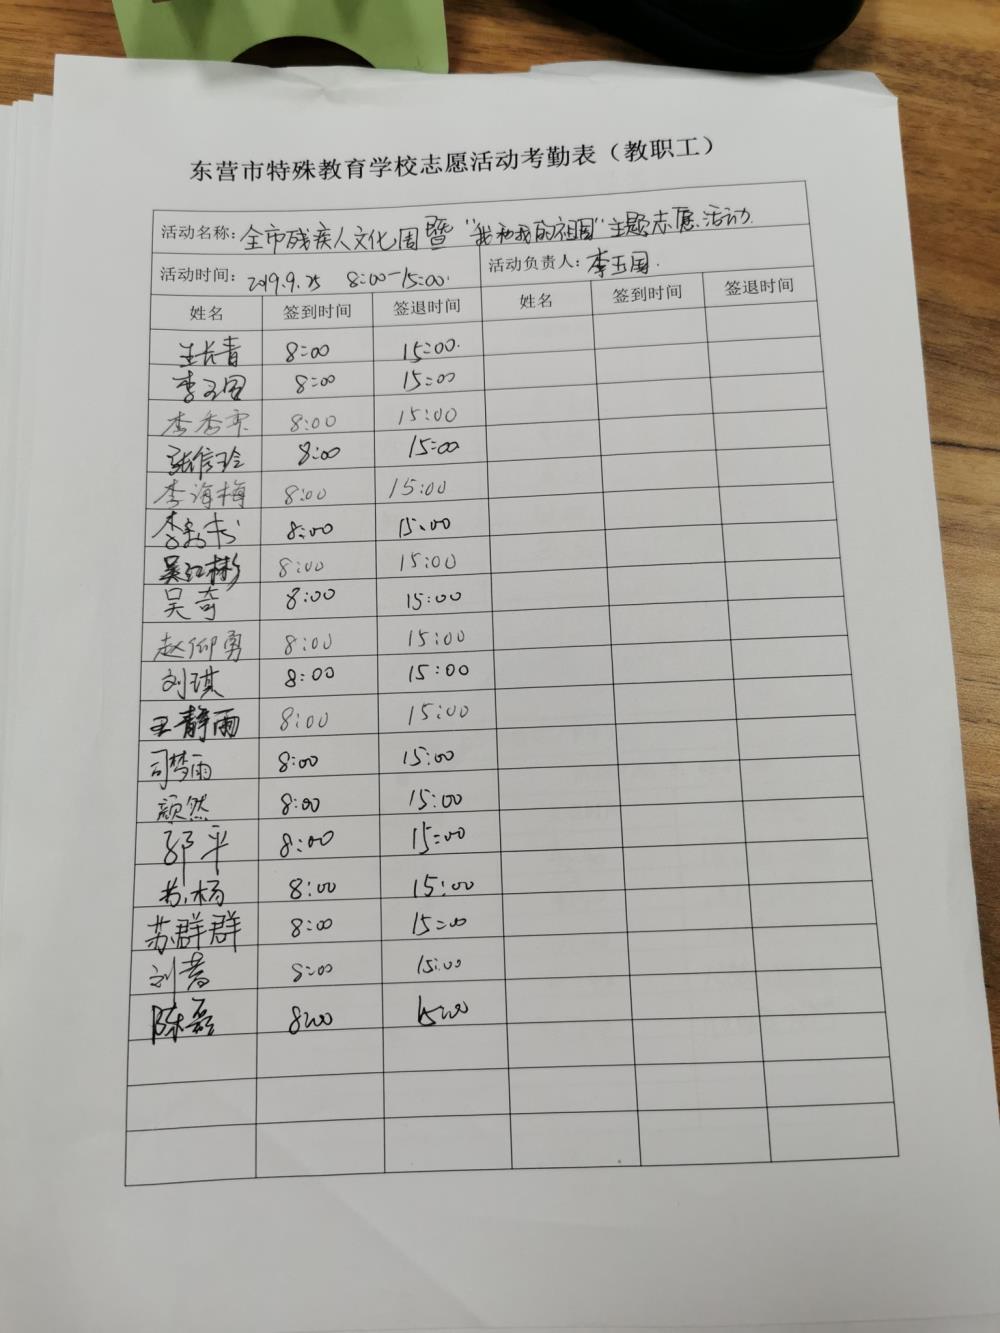 东营市特殊教育学校志愿活动考勤表（教职工）
活动名称：全市残疾人文化周暨"我和我的祖国"主题志愿活动
活动时间：2019.9.25 8:00-15:00 活动负责人：李玉国
姓名 签到时间 签退时间 姓名 签到时间 签退时间
王长青 8:00 15:00
李玉国 8:00 15:00
李秀 8:00 15:00
张信玲 8:00 15:00
李海梅 8:00 15:00
李 8:00 15:00
吴红彬 8:00 15:00
吴奇 8:00 15:00
赵仰勇 8:00 15:00
刘琪 8:00 15:00
王静雨 8:00 15:00
司梦雨 8:00 15:00
颜然 8:00 15:00
郭平 8:00 15:00
苏杨 8:00 15:00
苏群群 8:00 15:00
刘 8:00 15:00
陈磊 8:00 15:00